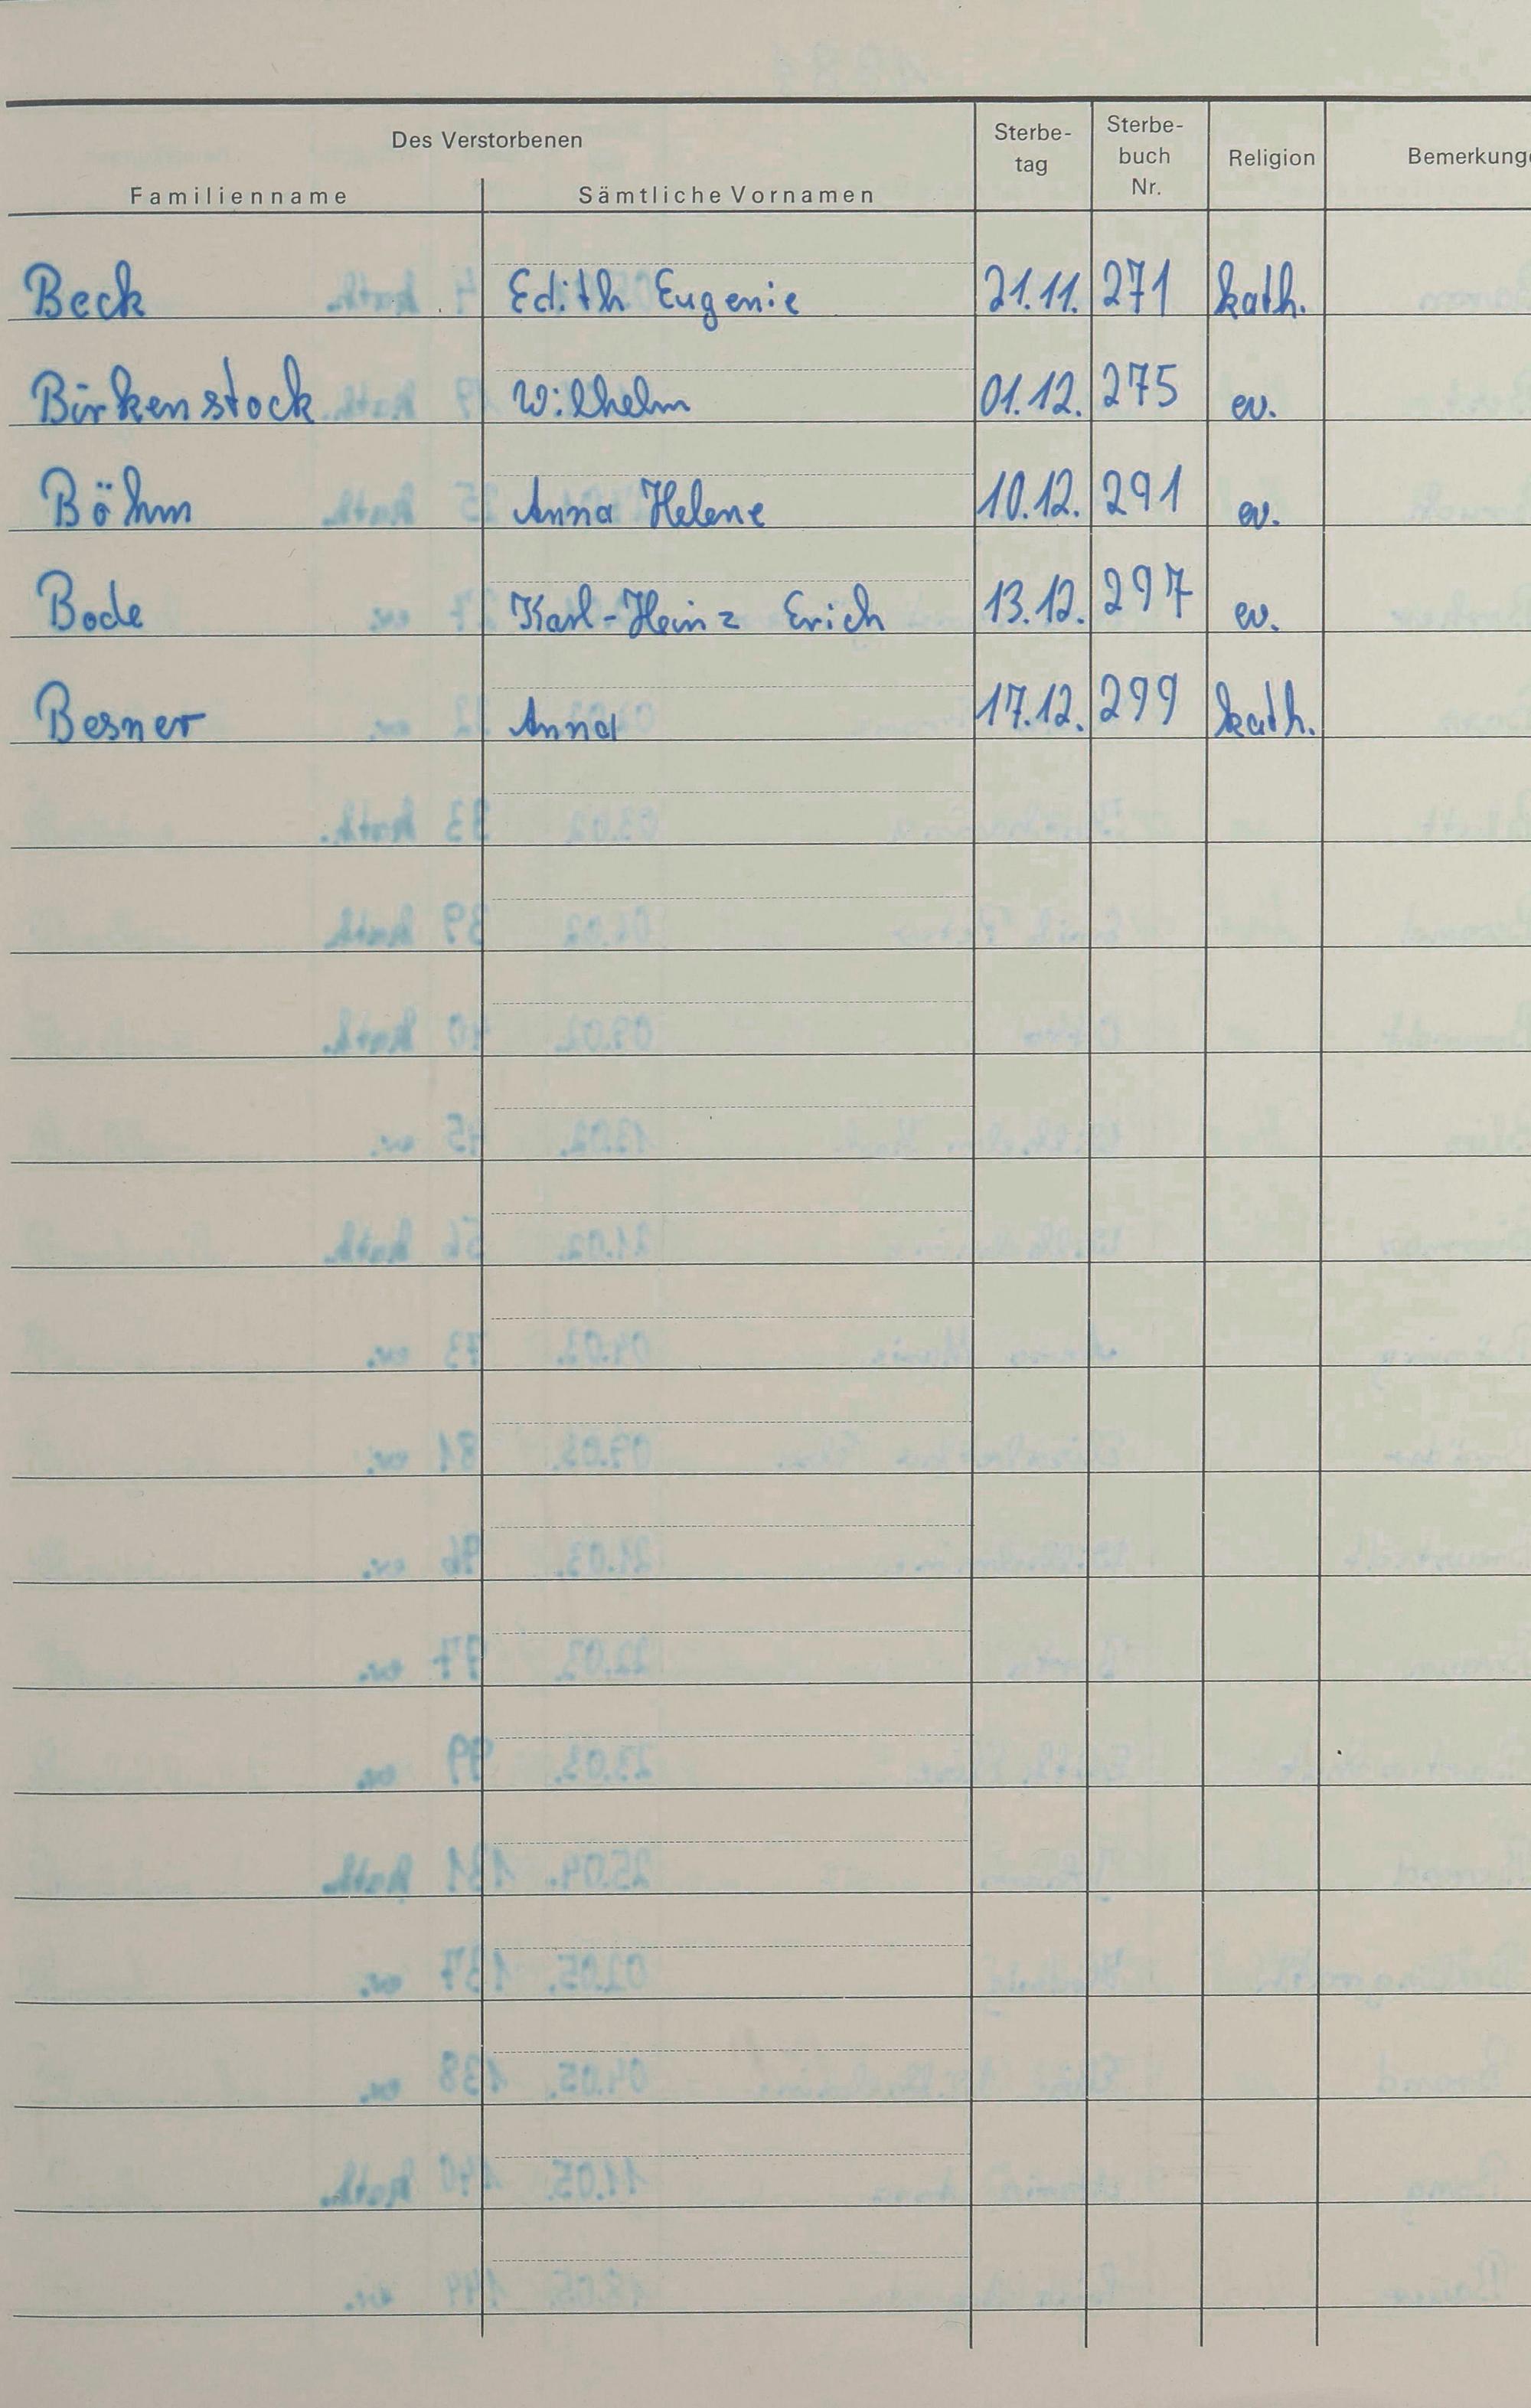 Des Verstorbenen
Familienname Sämtliche Vornamen Sterbe-tag Sterbe-buch Nr. Religion Bemerkung
Beck Edith Eugenie 21.11. 271 kath.
Birkenstock Wilhelm 01.12. 275 ev.
Böhm Anna Helene 10.12. 291 ev.
Bode Karl-Heinz Erich 13.12. 297 ev.
Besner Anna 17.12. 299 kath.